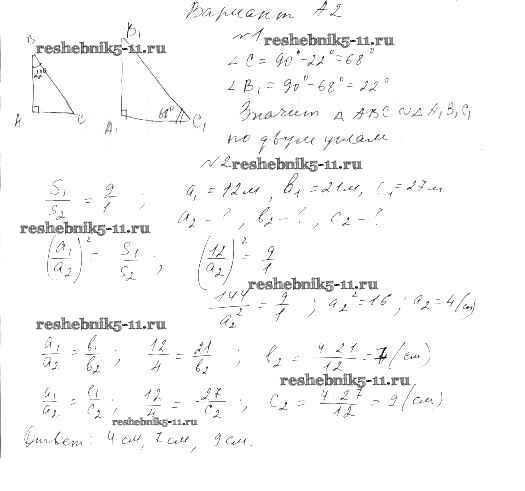 Вариант А2
№1
B
22°
A
C
B₁
A₁ 68° C₁
reshebnik5-11.ru
reshebnik5-11.ru
∠C = 90° - 22° = 68°
∠B₁ = 90° - 68° = 22°
Значит △ABC ∾ △A₁B₁C₁
по двум углам.
№2 reshebnik5-11.ru
S₁/S₂ = 9/1 ; a₁ = 12м, b₁ = 21м, c₁ = 27м
a₂ - ?, b₂ - ?, c₂ - ?
reshebnik5-11.ru
(a₁/a₂)² = S₁/S₂ ; (12/a₂)² = 9/1
reshebnik5-11.ru
144/a₂² = 9/1 ; a₂² = 16 ; a₂ = 4 (см)
reshebnik5-11.ru
a₁/a₂ = b₁/b₂ ; 12/4 = 21/b₂ ; b₂ = 4·21/12 = 7 (см)
reshebnik5-11.ru
a₁/a₂ = c₁/c₂ ; 12/4 = 27/c₂ ; c₂ = 4·27/12 = 9 (см)
reshebnik5-11.ru
Ответ: 4 см, 7 см, 9 см.